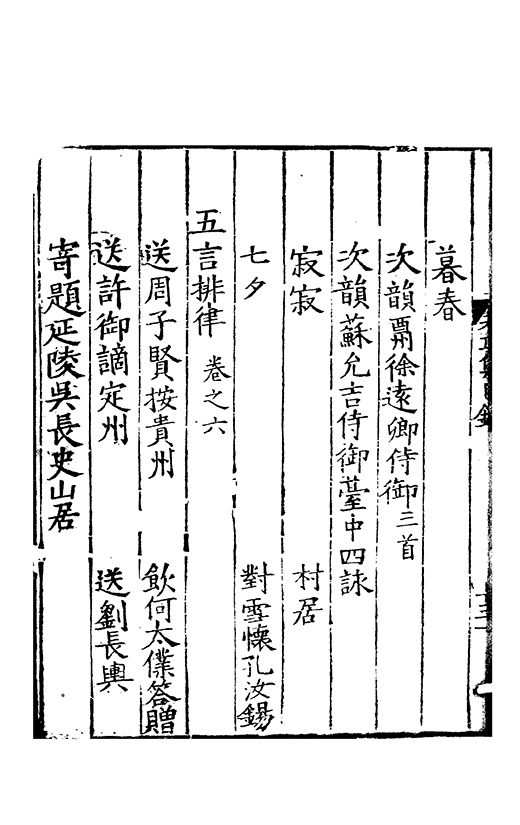 暮春
次韻酬徐遠卿侍御三首
次韻蘇允吉侍御臺中四詠
寂寂 村居
七夕 對雪懷孔汝錫
五言排律 卷之六
送周子賢按貴州 飲何太僕答贈
送許御謫定州 送劉長輿
寄題延陵吳長史山居